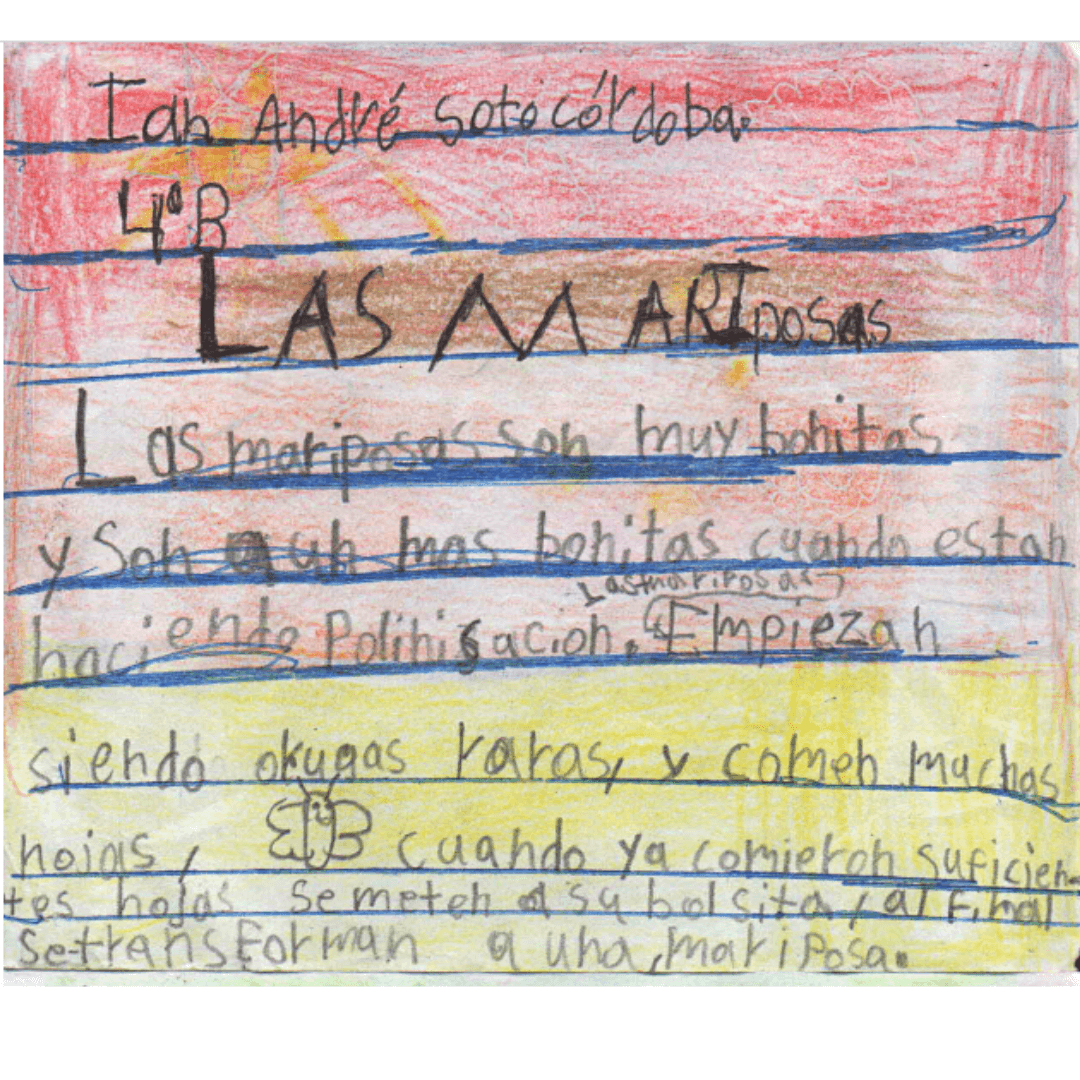 Ian André Soto córdoba.
4°B
LAS MARIposas
Las mariposas son muy bonitas
y Son aun mas bonitas cuando estan
Las mariposas
haciendo Polinisacion. Empiezan
siendo orugas raras, y comen muchas
hojas, cuando ya comieron suficien-
tes hojas se meten a su bolsita, al Final
se transForman a una mariposa.